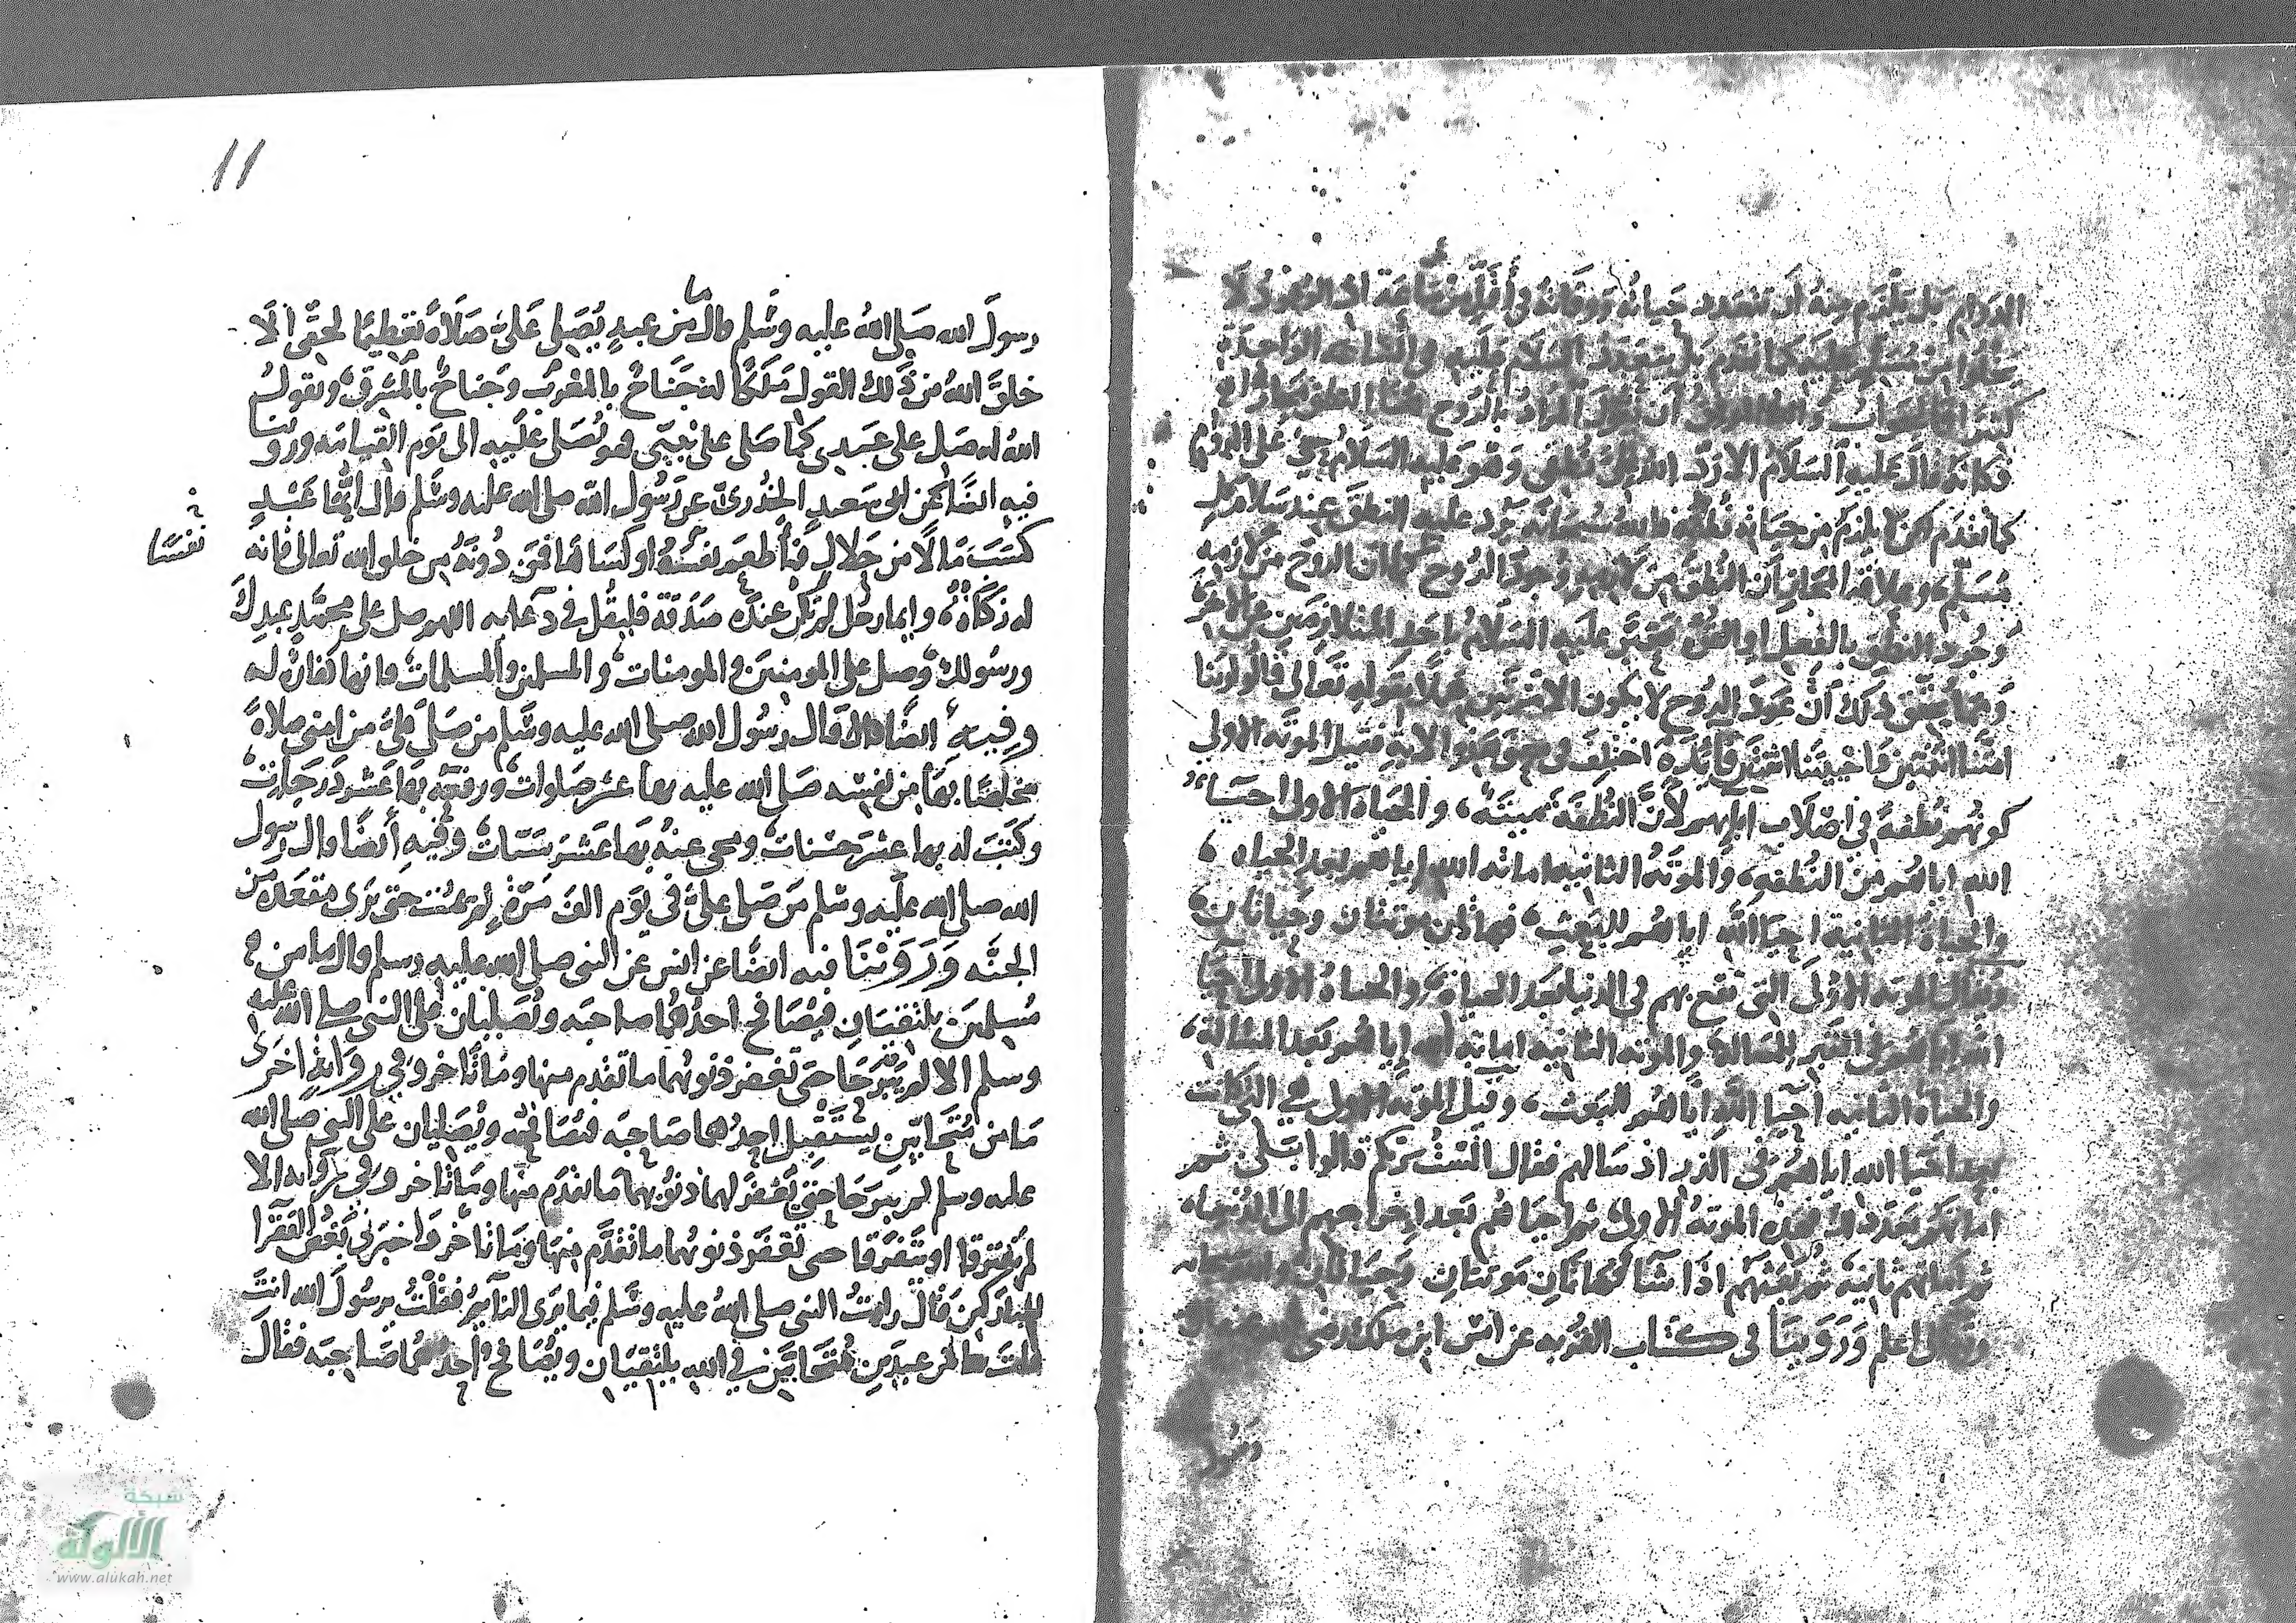 الدوام بل يلزم منه أن تتعدد حياته ووفاته في أقل من ساعة اذ الوجود لا
يخلوا من مسلم عليه كما تقدم بل يتعدد السلام عليه في الساعه الواحدة
كثيرا الجواب أن يقال المراد بالروح هنا النطق مجازا
فكانه قال عليه السلام الا رد الله الي نطقي وهو عليه السلام حي على الدوام
كما تقدم لكن لا يلزم من حياته نطقه فالله سبحانه يرد عليه النطق عند سلام كل
مسلم وعلاقة المجاز أن النطق من لازمه وجود الروح كما ان الروح من لازمه
وجود النطق بالفعل او القوة فعبر عليه السلام باحد المتلازمين عن الاخر
ومما يحقق ذلك أن عود الروح لا يكون الا مرتين عملا بقوله تعالى قالوا ربنا
امتنا اثنتين واحييتنا اثنتين فائدة اختلف في معنى هذه الاية فقيل الموته الاولى
كونهم نطفة في اصلاب ابايهم لأن النطفة ميتة، والحياة الاولى احياء
الله اياهم من النطفه، والموتة الثانيه اماته الله اياهم بعد الحياه،
والحياة الثانية احيا الله اياهم للبعث، فهاذان موتتان وحياتان،
ويقال الموته الاولى التي تقع بهم في الدنيا بعد الحياة، والحياة الاولى احيا
الله اياهم في القبر للمسالة والموته الثانيه اماته الله اياهم بعد المسالة،
والحياة الثانيه أحيا الله اياهم للبعث، وقيل الموته الاولى هي التي كانت
بعد احيا الله اياهم في الذر اذ سالهم فقال الست بربكم قالوا بلى ثم
اماتهم بعد ذلك فهذه الموتة الاولى ثم احياهم بعد اخراجهم الى الدنيا،
ثم اماتهم ثانية ثم يبعثهم اذا شا فهاتان موتتان وحياتان والله سبحانه
وتعالى اعلم وروينا في كتاب القربه عن انس ابن ملك رضي الله عنه ان
رسول
11
رسول الله صلى الله عليه وسلم قال ما من عبد يصلي علي صلاة تعظيما لحقي الا
خلق الله من ذلك القول ملكا له جناح بالمغرب وجناح بالمشرق، ويقول
الله له صل على عبدي كما صلى على نبيي فهو يصلى عليه الى يوم القيامه وروينا
فيه ايضا عن ابي سعيد الخدري عن رسول الله صلى الله عليه وسلم قال ايما عبد
كسب مالا من حلال فاطعم نفسه او كساها فمن دونه من خلق الله تعالى فانه
نفسا
له زكاة، وايما رجل لم يكن عنده صدقة فليقل في دعايه اللهم صل على محمد عبدك
ورسولك، وصل على المومنين والمومنات، والمسلمين والمسلمات، فانها كفارة له
وفيه ايضا قال قال رسول الله صلى الله عليه وسلم من صلى علي من امتي صلاة
مخلصا بها من نفسه صلى الله عليه بها عشر صلوات، ورفعه بها عشر درجات،
وكتب له بها عشر حسنات، ومحى عنه بها عشر سيئات، وفيه أيضا قال رسول
الله صلى الله عليه وسلم من صلى علي في يوم الف مرة لم يمت حتى يرى مقعده من
الجنه وروينا فيه ايضا عن انس عن النبي صلى الله عليه وسلم قال ما من
مسلمين يلتقيان فيصافح احدهما صاحبه ويصليان على النبي صلى الله عليه
وسلم الا لم يبرحا حتى تغفر ذنوبهما ما تقدم منها وما تاخر وفي رواية اخرى
ما من متحابين يستقبل احدهما صاحبه فيصافحه ويصليان على النبي صلى الله
عليه وسلم لم يبرحا حتى تغفر لهما ذنوبهما ما تقدم منها وما تاخر وفي رواية الا
لم يفترقا او يتفرقا حتى تغفر ذنوبهما ما تقدم منها وما تاخر واخبرني بعض الفقرا
المباركين قال رايت النبي صلى الله عليه وسلم فيما يرى النايم فقلت يرسول الله انت
قلت ما من عبدين متحابين في الله يلتقيان ويصافح احدهما صاحبه فقال
شبكة
الألوكة
www.alukah.net